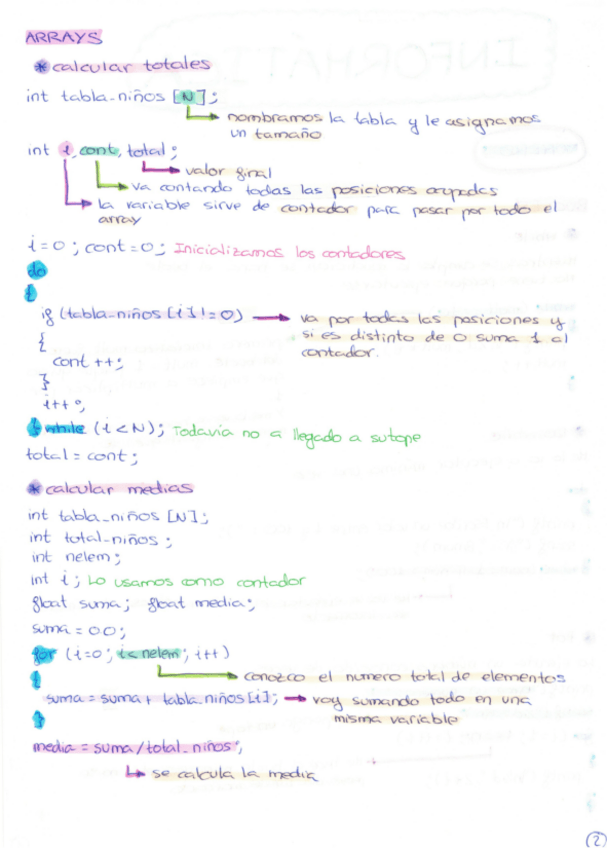 ARRAYS
* calcular totales
int tabla_niños [N];
nombramos la tabla y le asignamos
un tamaño
int i, cont, total;
valor final
va contando todas las posiciones ocupadas
la variable sirve de contador para pasar por todo el
array
i=0; cont=0; Inicializamos los contadores
do
{
if (tabla_niños [i] != 0) va por todas las posiciones y
si es distinto de 0 suma 1 al
contador.
{
cont ++;
}
i++;
} while (i < N); Todavía no a llegado a su tope
total = cont;
* calcular medias
int tabla_niños [N];
int total_niños;
int nelem;
int i; Lo usamos como contador
float suma; float media;
suma = 0.0;
for (i=0; i < nelem; i++)
conozco el numero total de elementos
{
suma = suma + tabla_niños [i]; voy sumando todo en una
misma variable
}
media = suma / total_niños;
se calcula la media
2